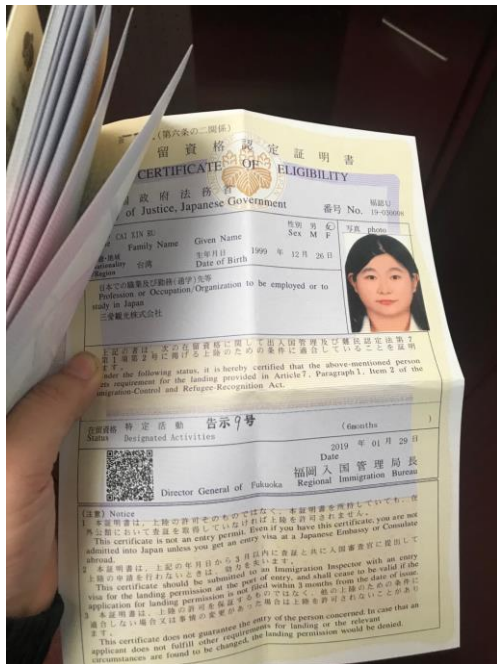 (第六条の二関係)
留資格認定証明書
CERTIFICATE OF ELIGIBILITY
政府法務省
of Justice, Japanese Government
番号 No. 19-030006
性別 男 女 写真 photo
Sex M F
CAI XIN RU
Family Name Given Name
国籍・地域 台湾 生年月日 1999 年 12月 26日
Nationality Date of Birth
/Region
日本での職業及び勤務(通学)先等
Profession or Occupation/Organization to be employed or to
study in Japan
三愛観光株式会社
上記の者は、次の在留資格に関して出入国管理及び難民認定法第7
条第1項第2号に掲げる上陸のための条件に適合していることを証明
します。
Under the following status, it is hereby certified that the above-mentioned person
meets requirement for the landing provided in Article 7, Paragraph 1, Item 2 of the
Immigration-Control and Refugee-Recognition Act.
在留資格 特定活動 告示9号 (6months )
Status Designated Activities
2019 年 01 月 29 日
Date
福岡入国管理局長
Director General of Fukuoka Regional Immigration Bureau
(注意) Notice
1 本証明書は、上陸の許可そのものではなく、本証明書を所持していても、在
外公館において査証を取得していなければ上陸を許可されません。
This certificate is not an entry permit. Even if you have this certificate, you are not
admitted into Japan unless you get an entry visa at a Japanese Embassy or Consulate
abroad.
2 本証明書は、上記の年月日から3月以内に査証と共に入国審査官に提出して
上陸の申請を行わないときは、効力を失います。
This certificate should be submitted to an Immigration Inspector with an entry
visa for the landing permission at the port of entry, and shall cease to be valid if the
application for landing permission is not filed within 3 months from the date of issue.
3 本証明書は、上陸の許可を保証するものではなく、他の上陸のための条件に
適合しない場合又は事情の変更があった場合は上陸を許可されないことがあり
ます。
This certificate does not guarantee the entry of the person concerned. In case that an
applicant does not fulfill other requirements for landing or the relevant
circumstances are found to be changed, the landing permission would be denied.